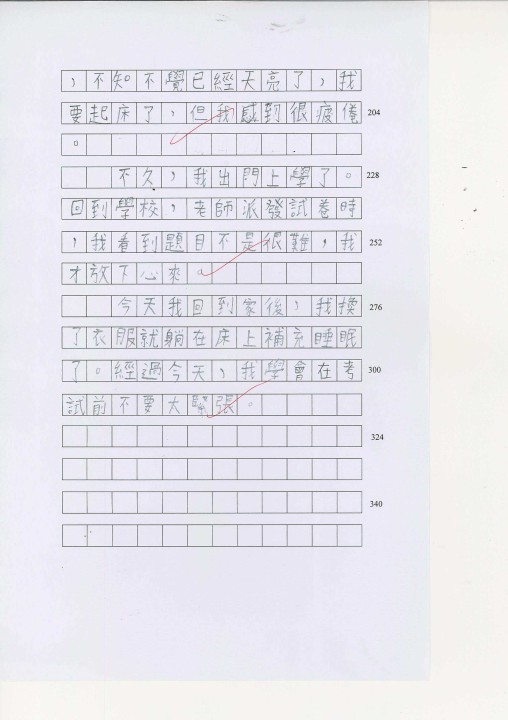 ，不知不覺已經天亮了，我
要起床了，但我感到很疲倦 204
。
不久，我出門上學了。 228
回到學校，老師派發試卷時
，我看到題目不是很難，我 252
才放下心來。
今天我回到家後，我換 276
了衣服就躺在床上補充睡眠
了。經過今天，我學會在考 300
試前不要大緊張。
324
340